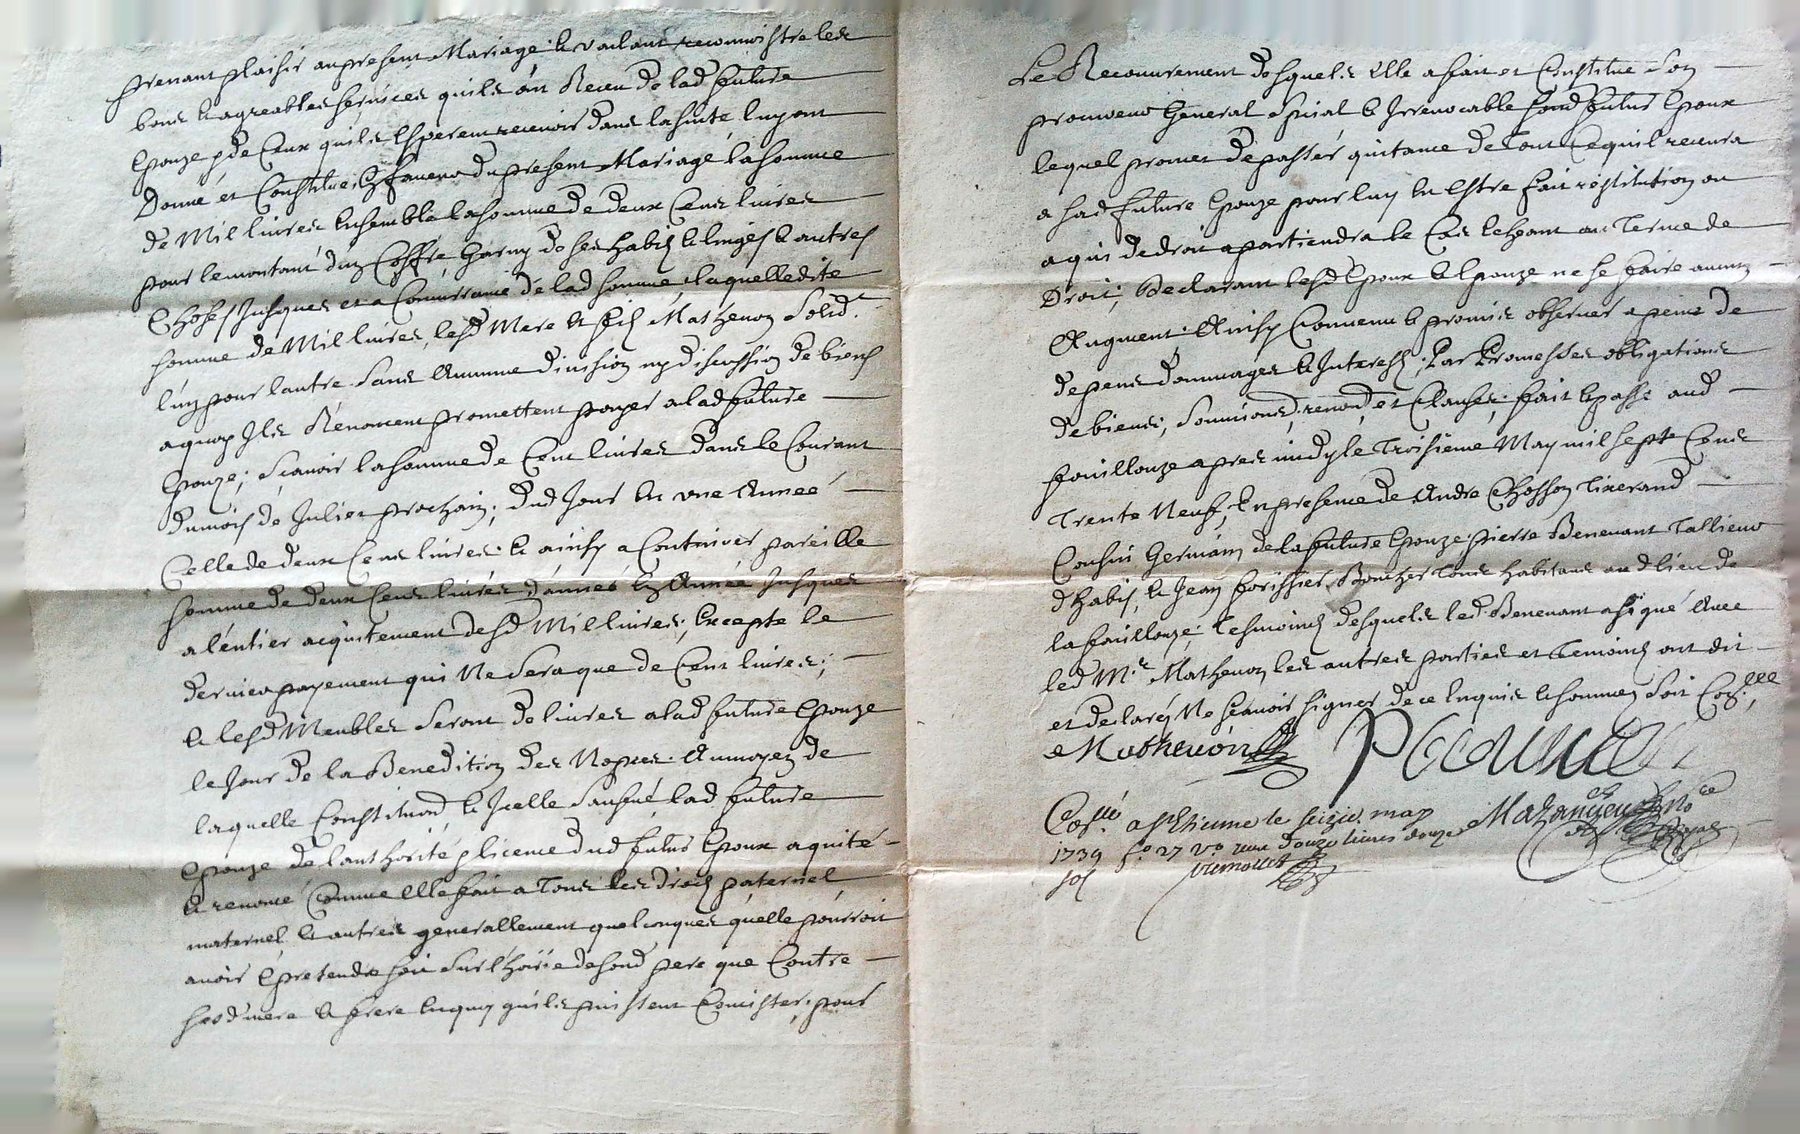 prenant plaisir au present Mariage, & voulant reconnoistre les
bons & agreables services quils ont Receu de lad future
Epouze & de Ceux quils Esperent recevoir dans la suite luy ont
Donné et Constitué En faveur du present Mariage la somme
de Mil livres Ensemble la somme de deux Cens livres
pour le montant dun Coffre Garny de ses habis & linges & autres
Choses Jusques et a Concurrance de lad somme, laquelle dite
somme de Mil livres, lesd Mere & fils Mathevon Solid.t
lun pour lautre Sans Aucune division ny discussion de biens
a quoy Ils Renoncent promettent payer a lad future
Epouze; Scavoir la somme de Cent livres dans le Courant
du mois de Julier prochain; dud Jour En une Année
Celle de deux Cens livres & ainsy a Continuer pareille
somme de deux Cens livres dannée En Année Jusques
a l'entier acquitement desd Mil livres; Excepté le
dernier payement qui Ne Sera que de Cent livres;
& lesd Meubles Seront delivres a lad future Epouze
le Jour de la Benedition des Nopces. Aumoyen de
laquelle Constituon & Icelle Sauf lad future
Epouze de lauthorité & licence dud futur Epoux a quité
& renoncé Comme Elle fait a Tous les droits paternel
maternel & autres generallement quelconques quelle pourroit
avoir & pretendre soit Sur lhoirie de son d pere que Contre
sesd mere & frere En quoy quils puissent Concister, pour
Le Recouvrement desquels Elle a fait et Constitué Son
procureur General Special & Irrevocable sond futur Epoux
lequel promet de passer quitance de Tout Ce quil recevra
a sad future Epouze pour luy En Estre fait restitution ou
a qui de droit apartiendra le Cas Echeant aux Terme de
Droit; Declarant lesd Epoux & Epouze ne se faire aucun
Augment; Ainsy Convenu & promis observer a peine de
depens dommages & Interests; Par Promesses obligations
de biens, Soumions, renond et Clauses; fait & passé aud
fouillouze apres midy le Troisieme May mil septe Cens
Trente Neuf, En presence de Andre Chosson Tixerand
Cousin Germain de la future Epouze pierre Benevant Tallieur
dhabis, & Jean forissier Boucher Tous habitans aud lieu de
la fouillouze; Tesmoins desquels led Benevant a signé Avec
led M.r Mathevon les autres parties et Temoins ont dit
et declaré Ne Scavoir signer de ce Enquis & sommes Soit Con.lle
Mathevon
Con.llé a St Etienne le seizie. may
1739 f.o 27 v.o reçu douze livres douze
sols